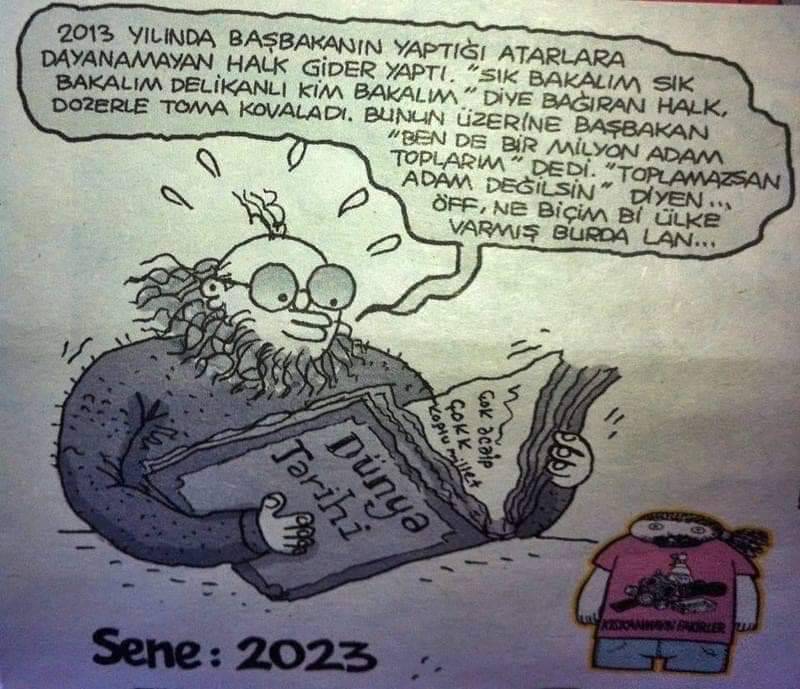 2013 YILINDA BAŞBAKANIN YAPTIĞI ATARLARA
DAYANAMAYAN HALK GİDER YAPTI. "SIK BAKALIM SIK
BAKALIM DELİKANLI KİM BAKALIM" DİYE BAĞIRAN HALK,
DOZERLE TOMA KOVALADI. BUNUN ÜZERİNE BAŞBAKAN
"BEN DE BİR MİLYON ADAM
TOPLARIM" DEDİ. "TOPLAMAZSAN
ADAM DEĞİLSİN" DİYEN...
ÖFF, NE BİÇİM Bİ ÜLKE
VARMIŞ BURDA LAN...
Çok acaip
Çokk
koplu millet
Dünya
Tarihi
KISKANMAYIN FAKİRLER
Sene: 2023